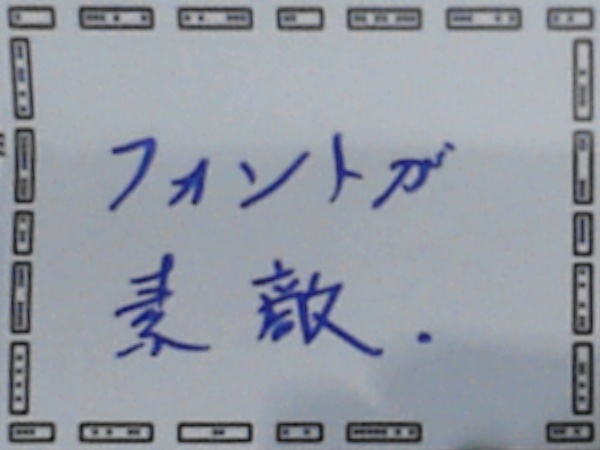 フォントが
素敵.